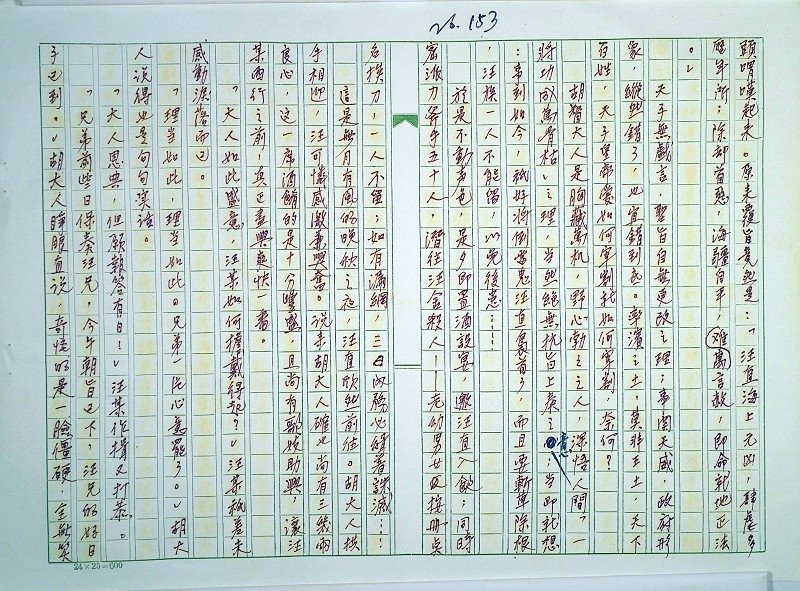 26.153
頭喟嘆起來。原來覆旨竟然是:「汪直海上元凶,肆虐多
歷年所;除却首惡,海疆自平,难萬言赦,即命就地正法
。」
天子無戲言,聖旨自無更改之理;事関天威,政府形
象,縱然錯了,也宜錯到底。率濱之土,莫非王土,天下
百姓,天子堂席愛如何宰割就如何宰割,奈何?
胡督大人是胸藏萬机,野心勃之之人,深悟人間「一
將功成萬骨枯」之理,当然絕無抗旨上奏之意;当即就想
:事到如今,祇好將倒霉鬼汪直梟首了,而且要斬草除根
,汪族一人不能留,以免後患……
於是不動声色,是夕即置酒設宴,邀汪直入飲;同時
密派刀斧手五十人,潛往汪舍殺人——老幼男女及按冊貞
名換刀,一人不留;如有漏網,三日內務必緝着誅滅……
這是無月有風的晚秋之夜,汪直欣然前往。胡大人拱
手相迎,汪可懷感激兼興奮。说来胡大人確也尚有三幾兩
良心,这一席酒餚的是十分豐盛,且尚有歌妓助興,讓汪
某西行之前,真正盡興爽快一番。
「大人如此盛意,汪某如何擔戴得起?」汪某祇差未
感動淚落而已。
「理当如此,理当如此。兄弟一片心意罷了。」胡大
人说得也是句句实話。
「大人恩典,但願報答有日!」汪某作揖又打恭。
「兄弟前些日保奏汪兄,今午朝旨已下,汪兄的好日
子已到。」胡大人睜眼直说,奇怪的是一臉僵硬,全無笑
24×25=600